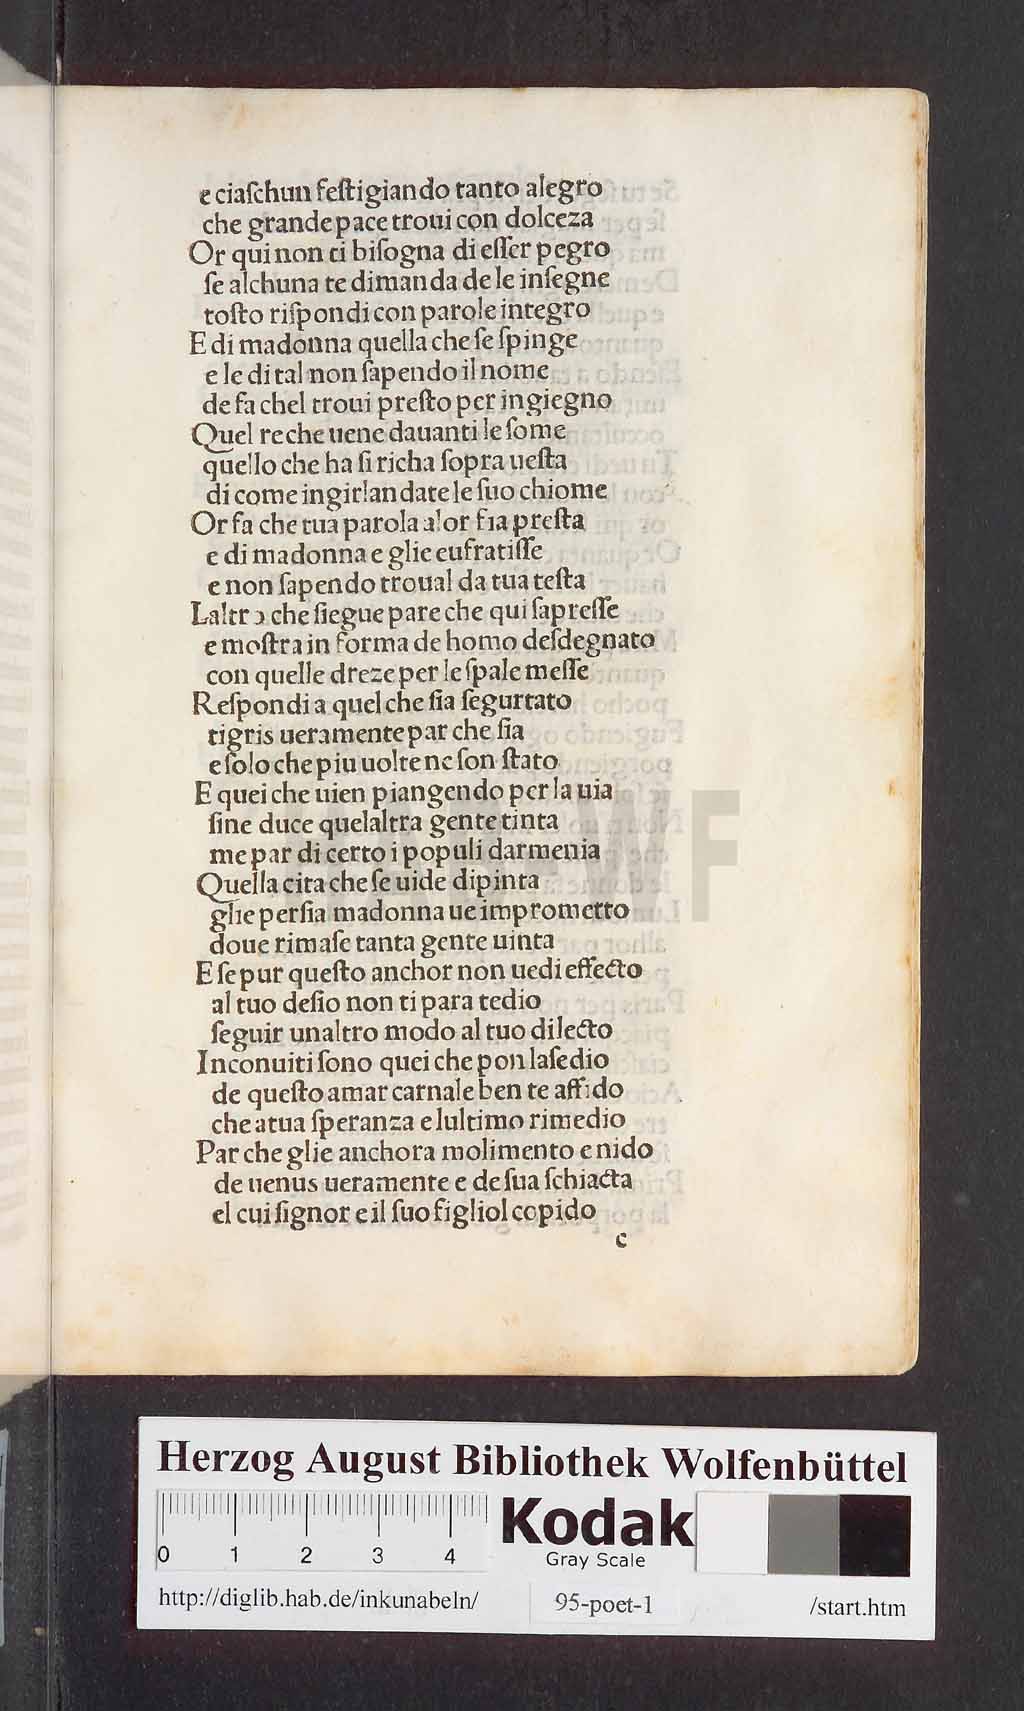 e ciaſchun feſtigiando tanto alegro
che grande pace troui con dolceza
Or qui non ti biſogna di eſſer pegro
ſe alchuna te dimanda de le inſegne
toſto riſpondi con parole integro
E di madonna quella che ſe ſpinge
e le di tal non ſapendo il nome
de fa chel troui preſto per ingiegno
Quel re che uene dauanti le ſome
quello che ha ſi richa ſopra ueſta
di come ingirlandate le ſuo chiome
Or fa che tua parola alor ſia preſta
e di madonna e glie eufratiſſe
e non ſapendo troual da tua teſta
Laltro che ſiegue pare che qui ſapreſſe
e moſtra in forma de homo deſdegnato
con quelle dreze per le ſpale meſſe
Reſpondi a quel che ſia ſegurtato
tigris ueramente par che ſia
e ſolo che piu uolte ne ſon ſtato
E quei che uien piangendo per la uia
ſine duce quelaltra gente tinta
me par di certo i populi darmenia
Quella cita che ſe uide dipinta
glie perſia madonna ue imprometto
doue rimaſe tanta gente uinta
E ſe pur queſto anchor non uedi effecto
al tuo deſio non ti para tedio
ſeguir unaltro modo al tuo dilecto
Inconuiti ſono quei che pon laſedio
de queſto amar carnale ben te affido
che a tua ſperanza e lultimo rimedio
Par che glie anchora molimento e nido
de uenus ueramente e de ſua ſchiacta
el cui ſignor e il ſuo figliol copido
c
HAB WF
Herzog August Bibliothek Wolfenbüttel
0 1 2 3 4
Kodak
Gray Scale
http://diglib.hab.de/inkunabeln/ 95-poet-1 /start.htm